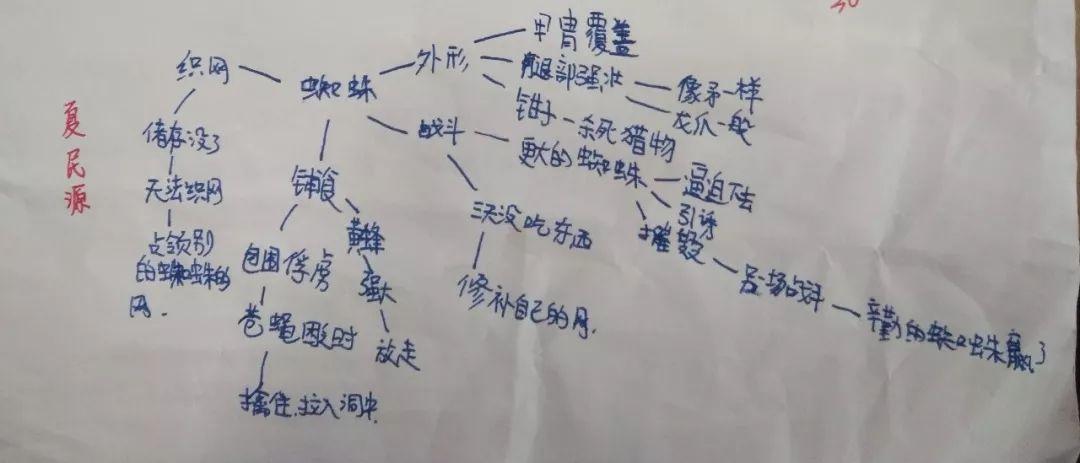 夏民源
蜘蛛
织网
储存没了
无法织网
占领别
的蜘蛛的
网.
捕食
包围俘虏
苍蝇困时
擒住.拉入洞中
黄蜂
强大
放走
外形
甲胄覆盖
腿部强壮
像矛一样
龙爪一般
钳子—杀死猎物
战斗
更大的蜘蛛
逼迫
引诱
摧毁
辛勤的蜘蛛赢了
三天没吃东西
修补自己的网.